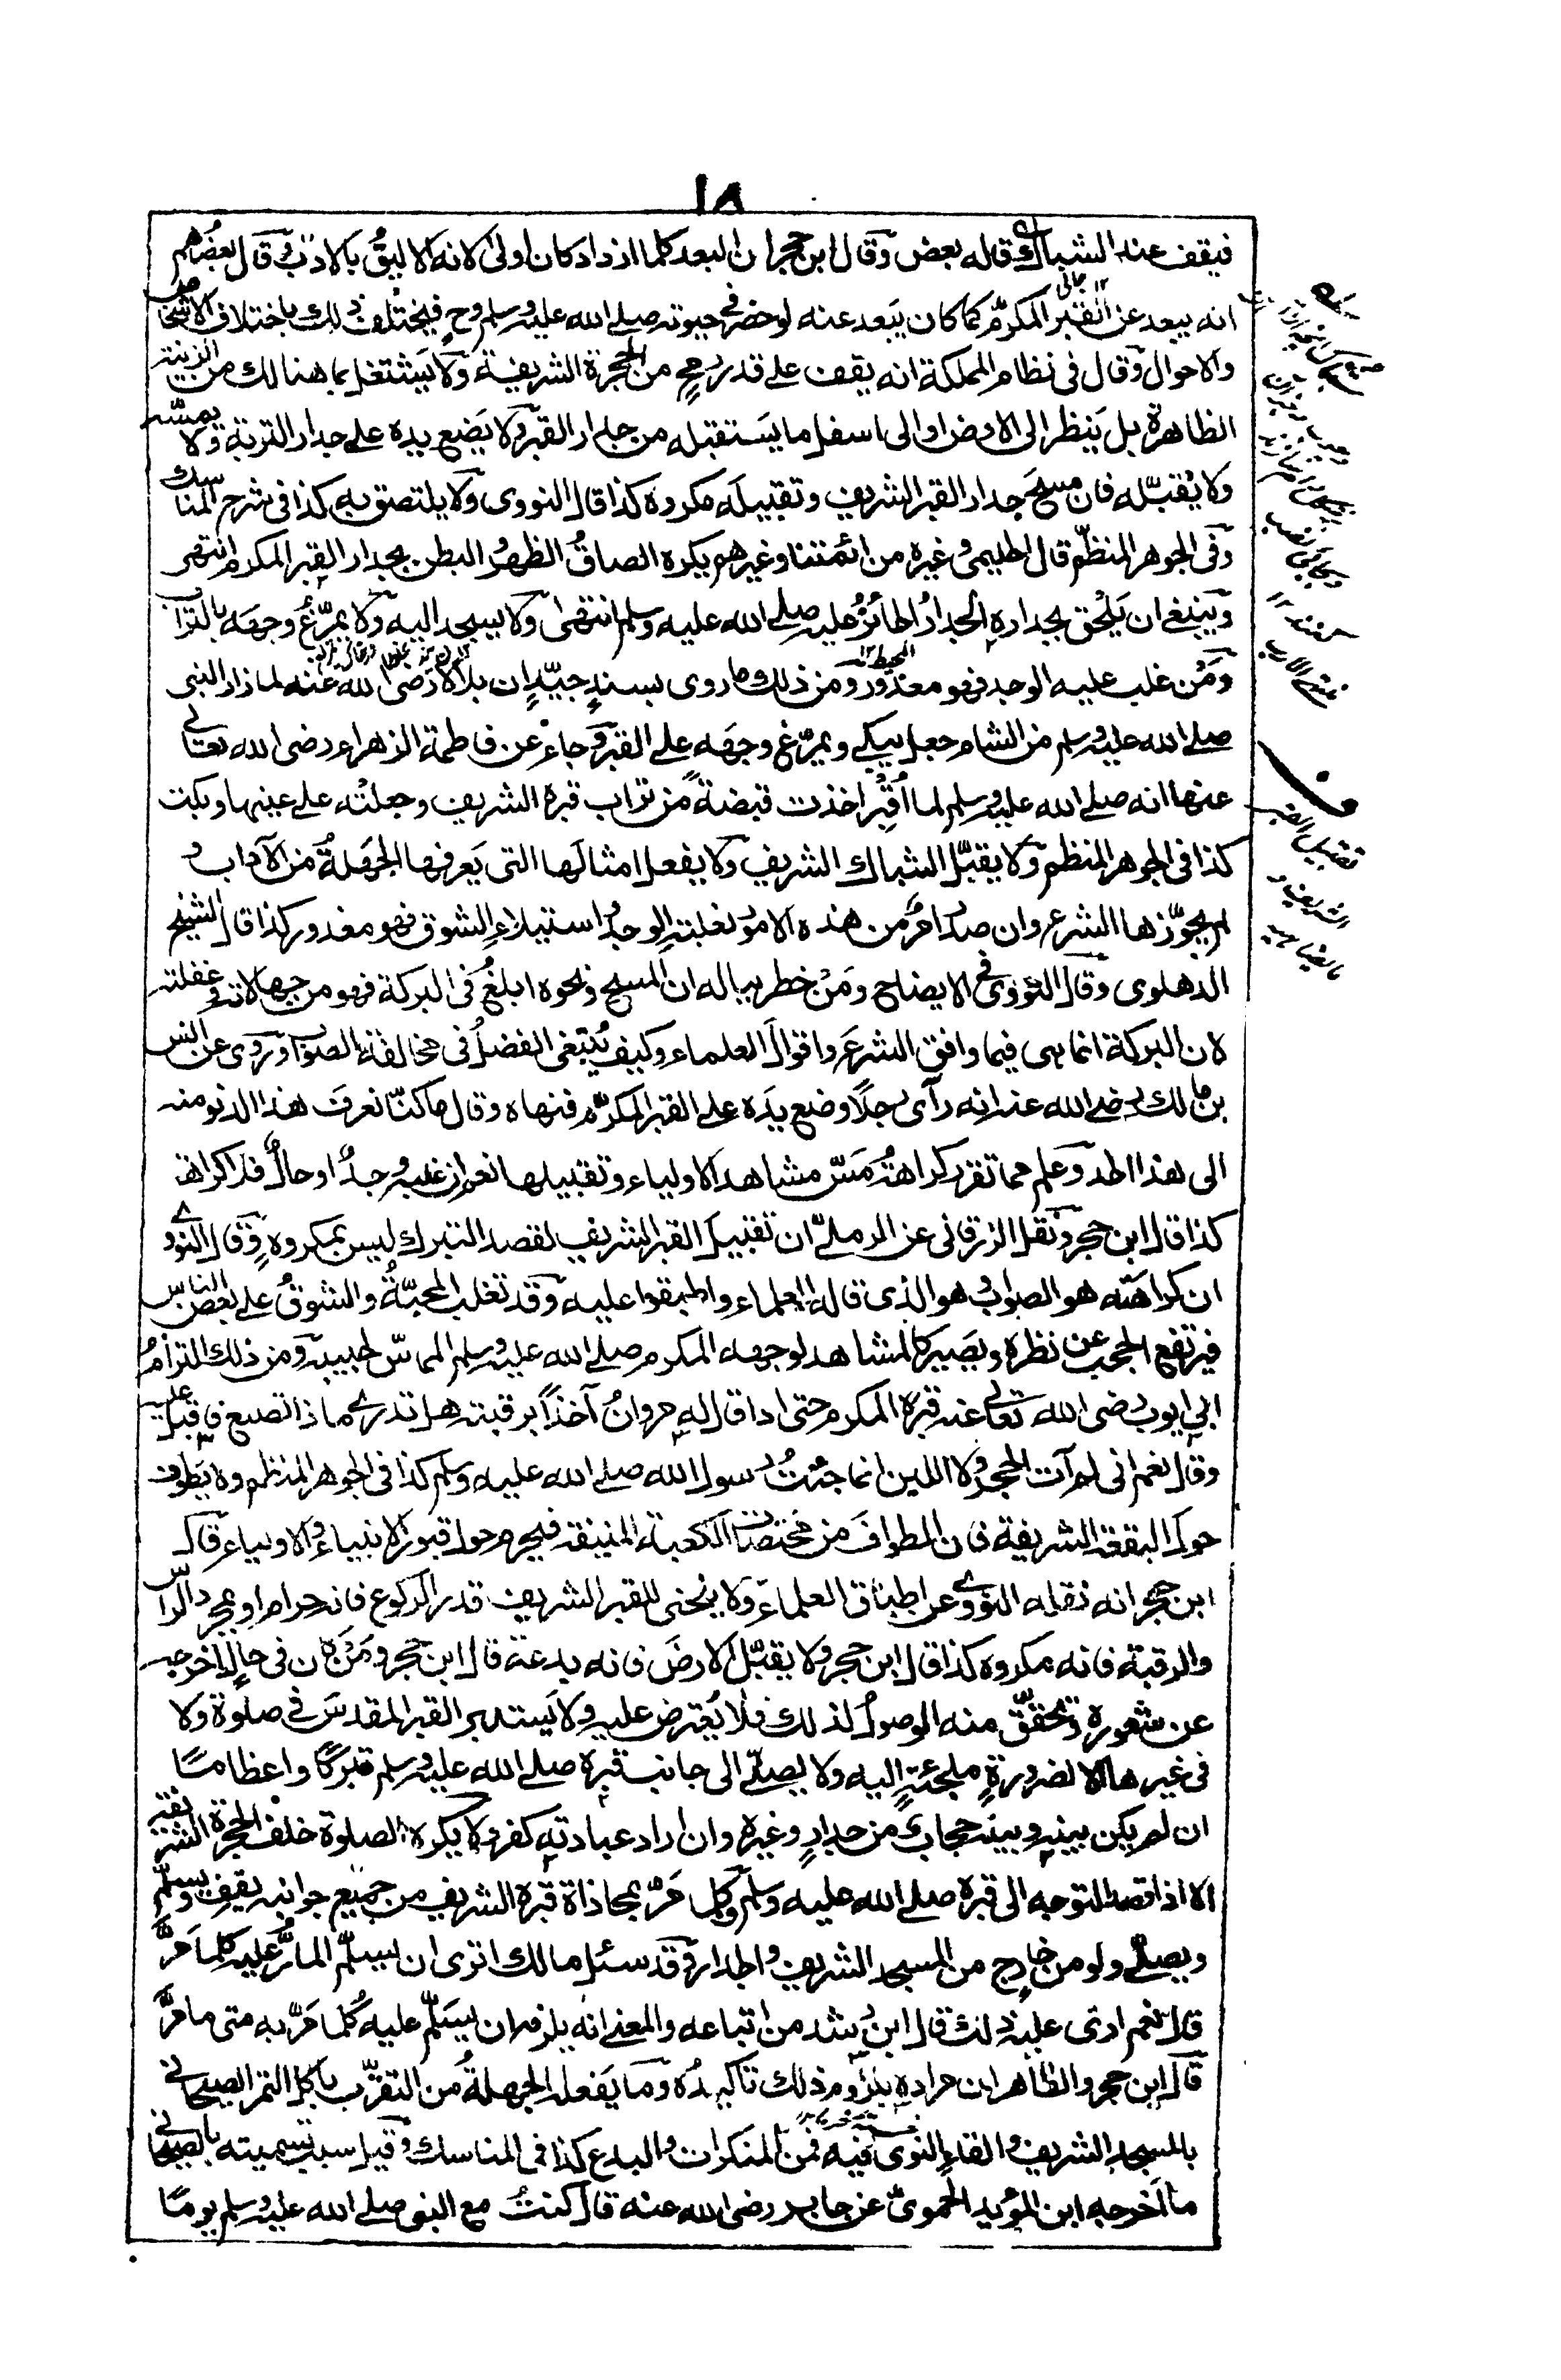 ١٨
فيقف عند الشباك قاله بعض وقال ابن حجر ان البعد كلما ازداد كان اولى لانه الاليق بالادب قال بعضهم
انه يبعد عن القبر المكرم كما كان يبعد عنه لو حضر في حيوته صلى الله عليه وسلم وح فيختلف ذلك باختلاف الاشخاص
والاحوال وقال فى نظام المملكة انه يقف على قدر رمح من الحجرة الشريفة ولا يشتغل بما هنالك من الزينة
الظاهرة بل ينظر الى الارض او الى اسفل ما يستقبله من جدار القبر ولا يضع يده على جدار التربة ولا يمسه
ولا يقبّله فان مسح جدار القبر الشريف وتقبيله مكروه كذا قال النووى ولا يلتصق به كذا فى شرح المناسك
وفى الجوهر المنظم قال الحليمى وغيره من ائمتنا وغيرهم يكره الصاق الظهر والبطن بجدار القبر المكرم انتهى
وينبغ ان يلحق بجداره الجدار الحائز عليه صلى الله عليه وسلم انتهى ولا يسجد اليه ولا يمرّغ وجهه بالتراب
ومن غلب عليه الوجد فهو معذور ومن ذلك ما روى بسند جيّد ان بلالا رضى الله عنه لما زار النبى
صلى الله عليه وسلم من الشام جعل يبكى ويمرّغ وجهه على القبر وجاء عن فاطمة الزهراء رضى الله تعالى
عنها انه صلى الله عليه وسلم لما اُقبر اخذت قبضة من تراب قبره الشريف وجعلته على عينها وبكت
كذا فى الجوهر المنظم ولا يقبّل الشباك الشريف ولا يفعل امثالها التى يعرفها الجهلة من الآداب و
لم يجوّزها الشرع وان صدر امر من هذه الامور لغلبة الوجد واستيلاء الشوق فهو معذور كذا قال الشيخ
الدهلوى وقال النووى فى الايضاح ومن خطر بباله ان المسح ونحوه ابلغ فى البركة فهو من جهالاته وغفلته
لان البركة انما هى فيما وافق الشرع واقوال العلماء وكيف يُبتغى الفضل فى مخالفة الصواب وروى عن انس
بن مالك رضى الله عنه انه رآى رجلًا وضع يده على القبر المكرّم فنهاه وقال ما كنّا نعرف هذا الدنو منه
الى هذا الحد وعلم مما تقرر كراهة مسّ مشاهد الاولياء وتقبيلها نعم ان غلبه وجد او حال فلا كراهة
كذا قال ابن حجر ونقل الزرقانى عن الرملى ان تقبيل القبر الشريف لقصد التبرك ليس بمكروه وقال النووى
ان كراهته هو الصواب هو الذى قاله العلماء واطبقوا عليه وقد تغلب المحبّة والشوق على بعض الناس
فيرتفع الحجب عن نظره ويصير كالمشاهد لوجهه المكرم صلى الله عليه وسلم المماس لحبيبه ومن ذلك التزام
ابى ايوب رضى الله تعالى عنه قبره المكرم حتى اذا قال له مروان آخذًا برقبته هل تدرى ماذا تصنع فاقبل عليه
وقال نعم انى لم آت الحجر ولا اللبن انما جئت رسول الله صلى الله عليه وسلم كذا فى الجوهر المنظم ولا يطوف
حول البقعة الشريفة فان الطواف من مختصات الكعبة المنيفة فيحرم حول قبور الانبياء والاولياء قال
ابن حجر انه نقله النووى عن اطباق العلماء ولا ينحنى للقبر الشريف قدر الركوع فانه حرام او بمجرد الرأس
والرقبة فانه مكروه كذا قال ابن حجر ولا يقبّل الارض فانه بدعة قال ابن حجر ومن كان فى حال اخرجه
عن شعوره وتحقق منه الوصول لذلك فلا يُعترض عليه ولا يستدبر القبر المقدس فى صلوة ولا
فى غيرها الا لضرورة ملجئة اليه ولا يصلّى الى جانب قبره صلى الله عليه وسلم تبركًا واعظامًا
ان لم يكن بينه وبينه حجاب من جدار وغيره وان اراد عبادته كفر ولا يكره الصلوة خلف الحجرة الشريفة
الا اذا قصد التوجه الى قبره صلى الله عليه وسلم وكلما مرّ بمحاذاة قبره الشريف من جميع جوانبه يقف ويسلّم
ويصلّى ولو من خارج من المسجد الشريف والجدار وقد سئل مالك اترى ان يسلّم المارّ عليه كلما مرّ
قال نعم ارى عليه ذلك قال ابن رشد من اتباعه والمعنى انه يلزمه ان يسلّم عليه كلما مرّ به متى ما مرّ
قال ابن حجر والظاهر ان مراده بلزوم ذلك تاكيده وما يفعل الجهلة من التقرّب باكل التمر الصيحانى
بالمسجد الشريف والقاء النوى فيه فمن المنكرات والبدع كذا فى المناسك وقيل سبب تسميته بالصيحانى
ما اخرجه ابن المؤيد الحموى عن جابر رضى الله عنه قال كنت مع النبى صلى الله عليه وسلم يومًا
تقبيل القبر
الشريف و